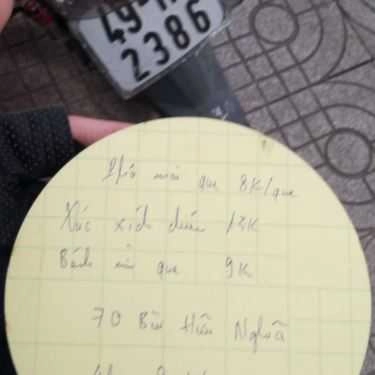 2386
Phô mai que 8K/que
Xúc xích chiên 12K
Bánh mì que 9K
70 Bùi Hữu Nghĩa